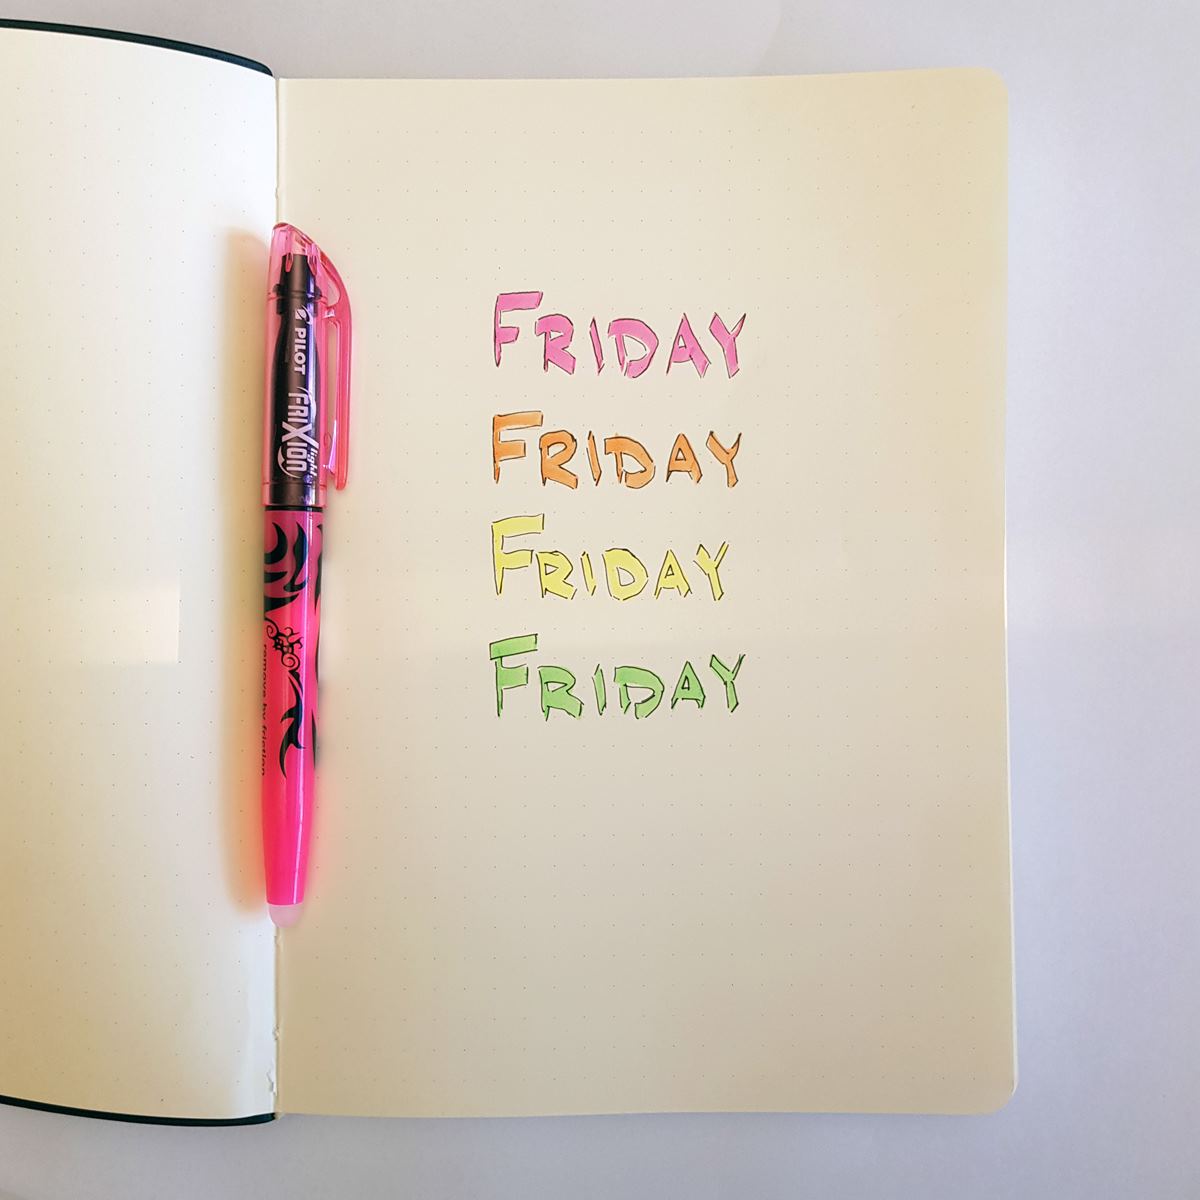 PILOT
FRIXION light
remove by friction
FRIDAY
FRIDAY
FRIDAY
FRIDAY